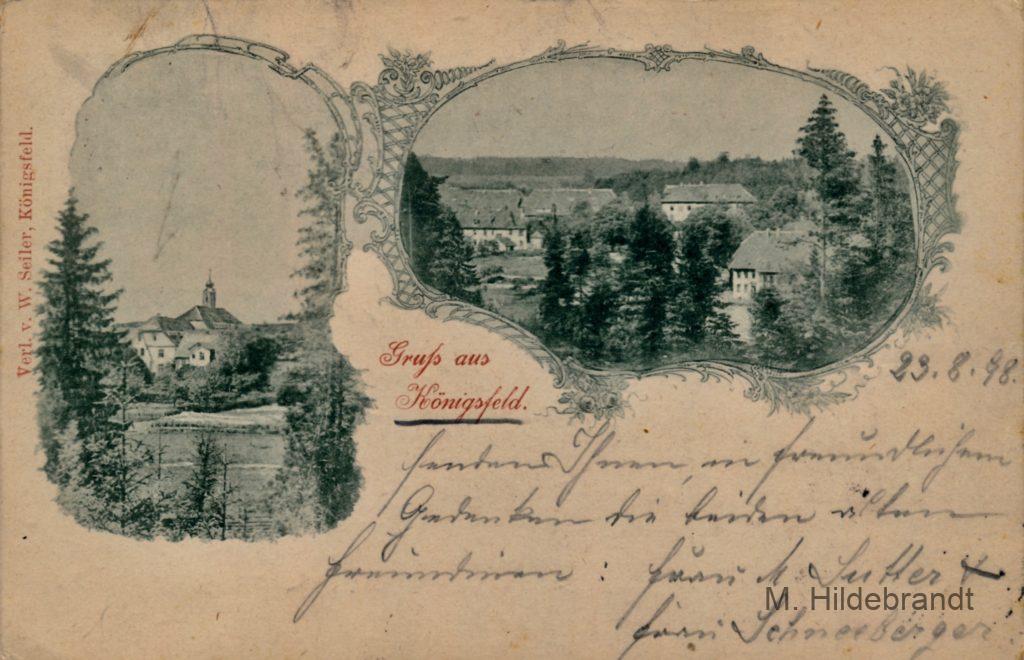 Verl. v. W. Seiler, Königsfeld.
Gruß aus
Königsfeld.
23.8.98.
senden Ihnen, in freundlichem
Gedenken die beiden alten
Freundinen : Frau M. Sutter &
M. Hildebrandt
Frau Schneeberger.